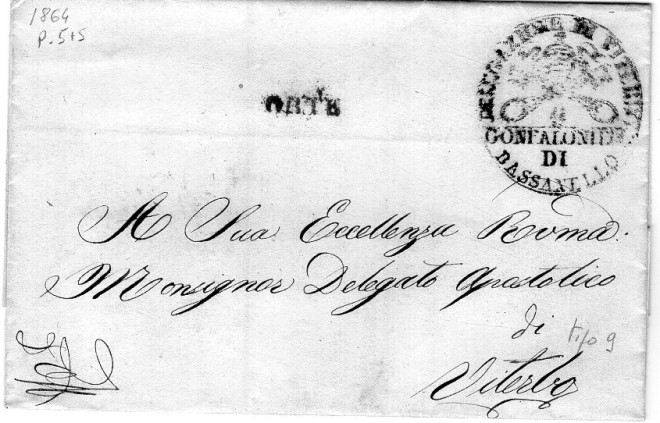 1864
p. 5+5
ORTE
DELEGAZIONE DI VITERBO
IL
GONFALONIERE
DI
BASSANELLO
A Sua Eccellenza Rvma.
Monsignor Delegato Apostolico
di
tipo 9
Viterbo